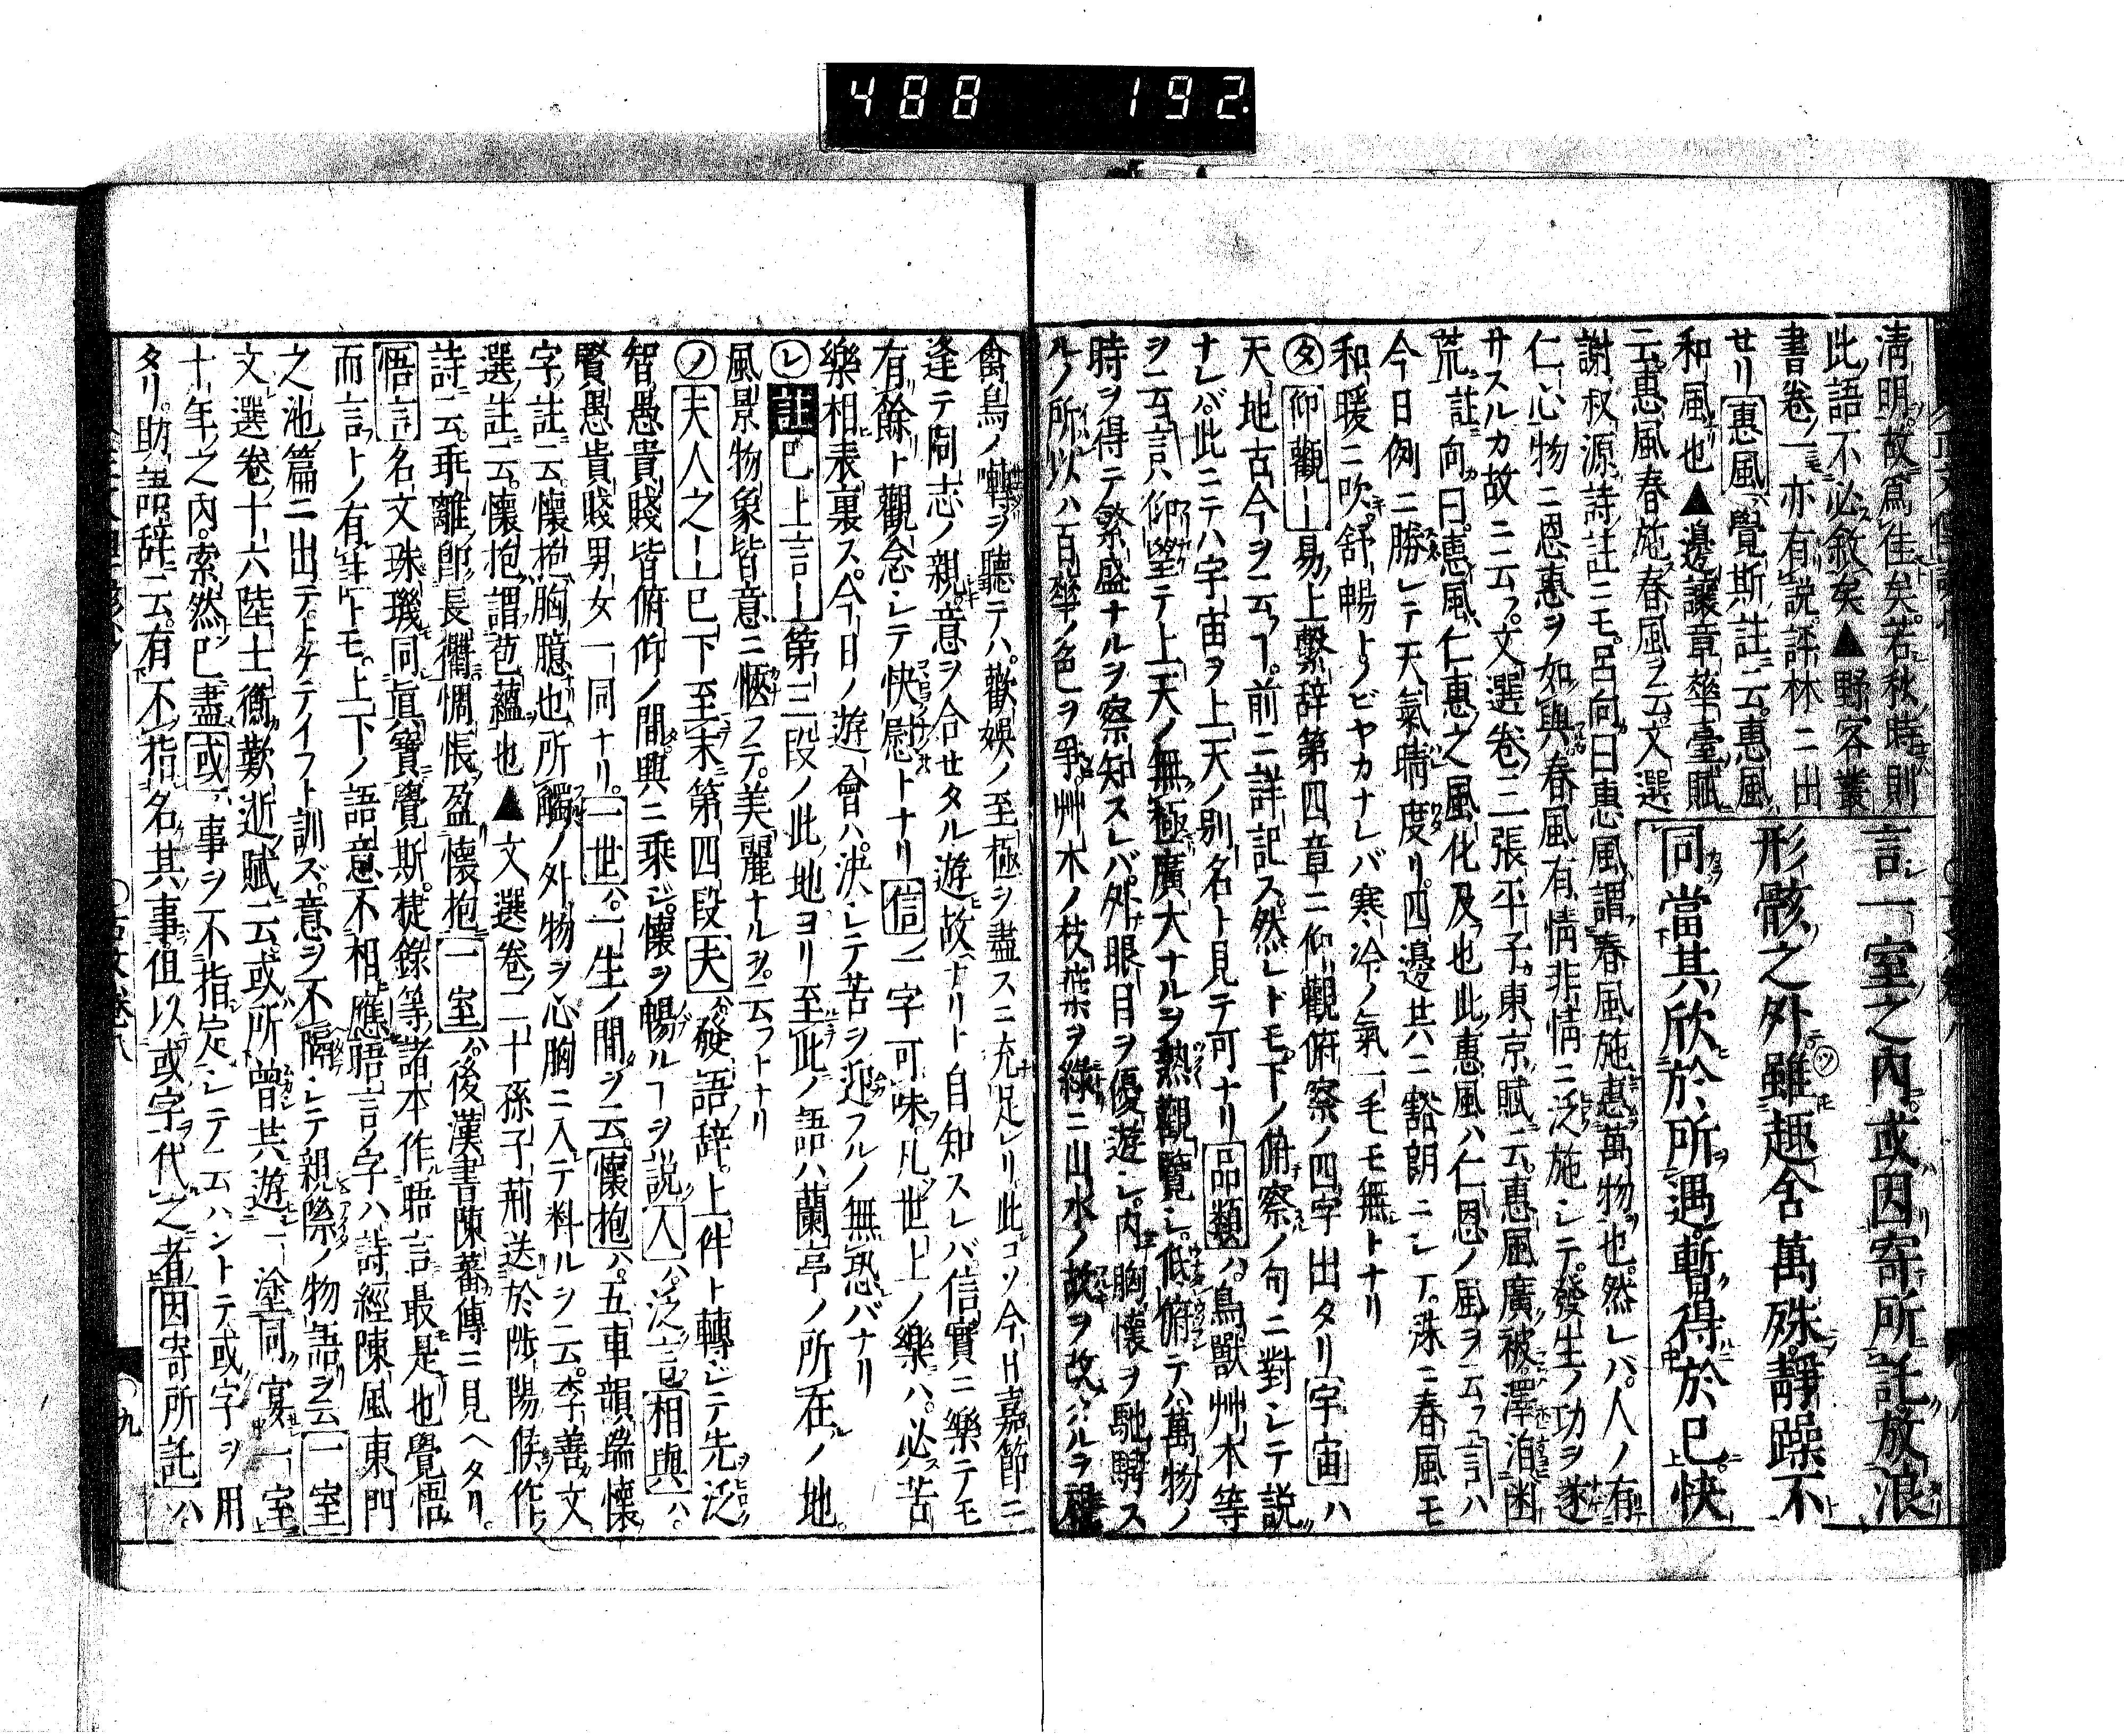 488 192.
言一室之內或因寄所託放浪
形骸之外雖趣舍萬殊靜躁不
同當其欣於所遇暫得於己快
清明故爲佳矣若秋時則
此語不必敘矣▲野客叢
書卷一亦有說評林ニ出
セリ惠風覺斯註云惠風
和風也▲邊讓章華臺賦
云惠風春施春風ヲ云文選
謝叔源詩註ニモ呂向曰惠風謂春風施惠萬物也然レバ人ノ有
仁心物ニ恩惠ヲ如與春風有情非情ニ泛施シテ發生ノ功ヲ遂
サスルカ故ニ云フ文選卷三張平子東京賦云惠風廣被澤洎幽
荒註向曰惠風仁惠之風化及也此惠風ハ仁恩ノ風ヲ云フ言ハ
今日例ニ勝レテ天氣晴度リ四邊共ニ豁朗ニシテ殊ニ春風モ
和暖ニ吹舒暢トノビヤカナレバ寒冷ノ氣一毛モ無トナリ
タ仰觀ー易上繫辞第四章ニ仰觀俯察ノ四字出タリ宇宙ハ
天地古今ヲ云フ前ニ詳記ス然レトモ下ノ俯察ノ句ニ對シテ説
ナレバ此ニテハ宇宙ヲ上天ノ別名ト見テ可ナリ品類ハ鳥獸艸木等
ヲ云言ハ仰望テ上天ノ無極廣大ナルヲ熟觀覽シ低俯テハ萬物ノ
時ヲ得テ繁盛ナルヲ察知スレバ外眼目ヲ優遊シ內胸懷ヲ馳騁ス
ルノ所以ハ百華ノ色ヲ爭艸木ノ枝葉ヲ綠ニ山水ノ故ヲ改ハルラ
禽鳥ノ囀ヲ聽テハ歡娯ノ至極ヲ盡スニ充足レリ此コソ今日嘉節ニ
逢テ同志ノ親意ヲ合セタル遊故ナリト自知スレバ信實ニ樂テモ
有餘ト觀念シテ快慰トナリ信ノ一字可味凡世上ノ樂ハ必苦
樂相表裏ス今日ノ遊會ハ決シテ苦ヲ迎フルノ無恐バナリ
レ註已上言ー第三段ノ此地ヨリ至此ノ語ハ蘭亭ノ所在ノ地
風景物象皆意ニ愜フテ美麗ナルヲ云フトナリ
ノ夫人之ー已下至末第四段夫發語辞上件ト轉シテ先泛
智愚貴賤皆俯仰ノ間興ニ乘シ懷ヲ暢ルヿヲ説人ハ泛言相與ハ
賢愚貴賤男女一同ナリ一世ハ一生ノ間ヲ云懷抱ハ五車韻瑞懷
字註云懷抱胸臆也所觸ノ外物ヲ心胸ニ入テ料ルヲ云李善文
選註云懷抱謂苞蘊也▲文選卷二十孫子荊送於陟陽候作
詩云乖離卽長衢惆悵盈懷抱一室ハ後漢書陳蕃傳ニ見ヘタリ
悟言名文珠璣同眞寶覺斯梃錄等諸本作晤言最是也覺悟
而言トノ有註トモ上下ノ語意不相應晤言ノ字ハ詩經陳風東門
之池篇ニ出テトケテイフト訓ズ意ヲ不隔シテ親際ノ物語ヲ云一室
文選卷十六陸士衡歎逝賦云或所曾共遊一塗同宴一室
十年之內索然已盡或事ヲ不指定シテ云ハントテ或字ヲ用
タリ助語辞云有不指名其事但以或字代之者因寄所託ハ